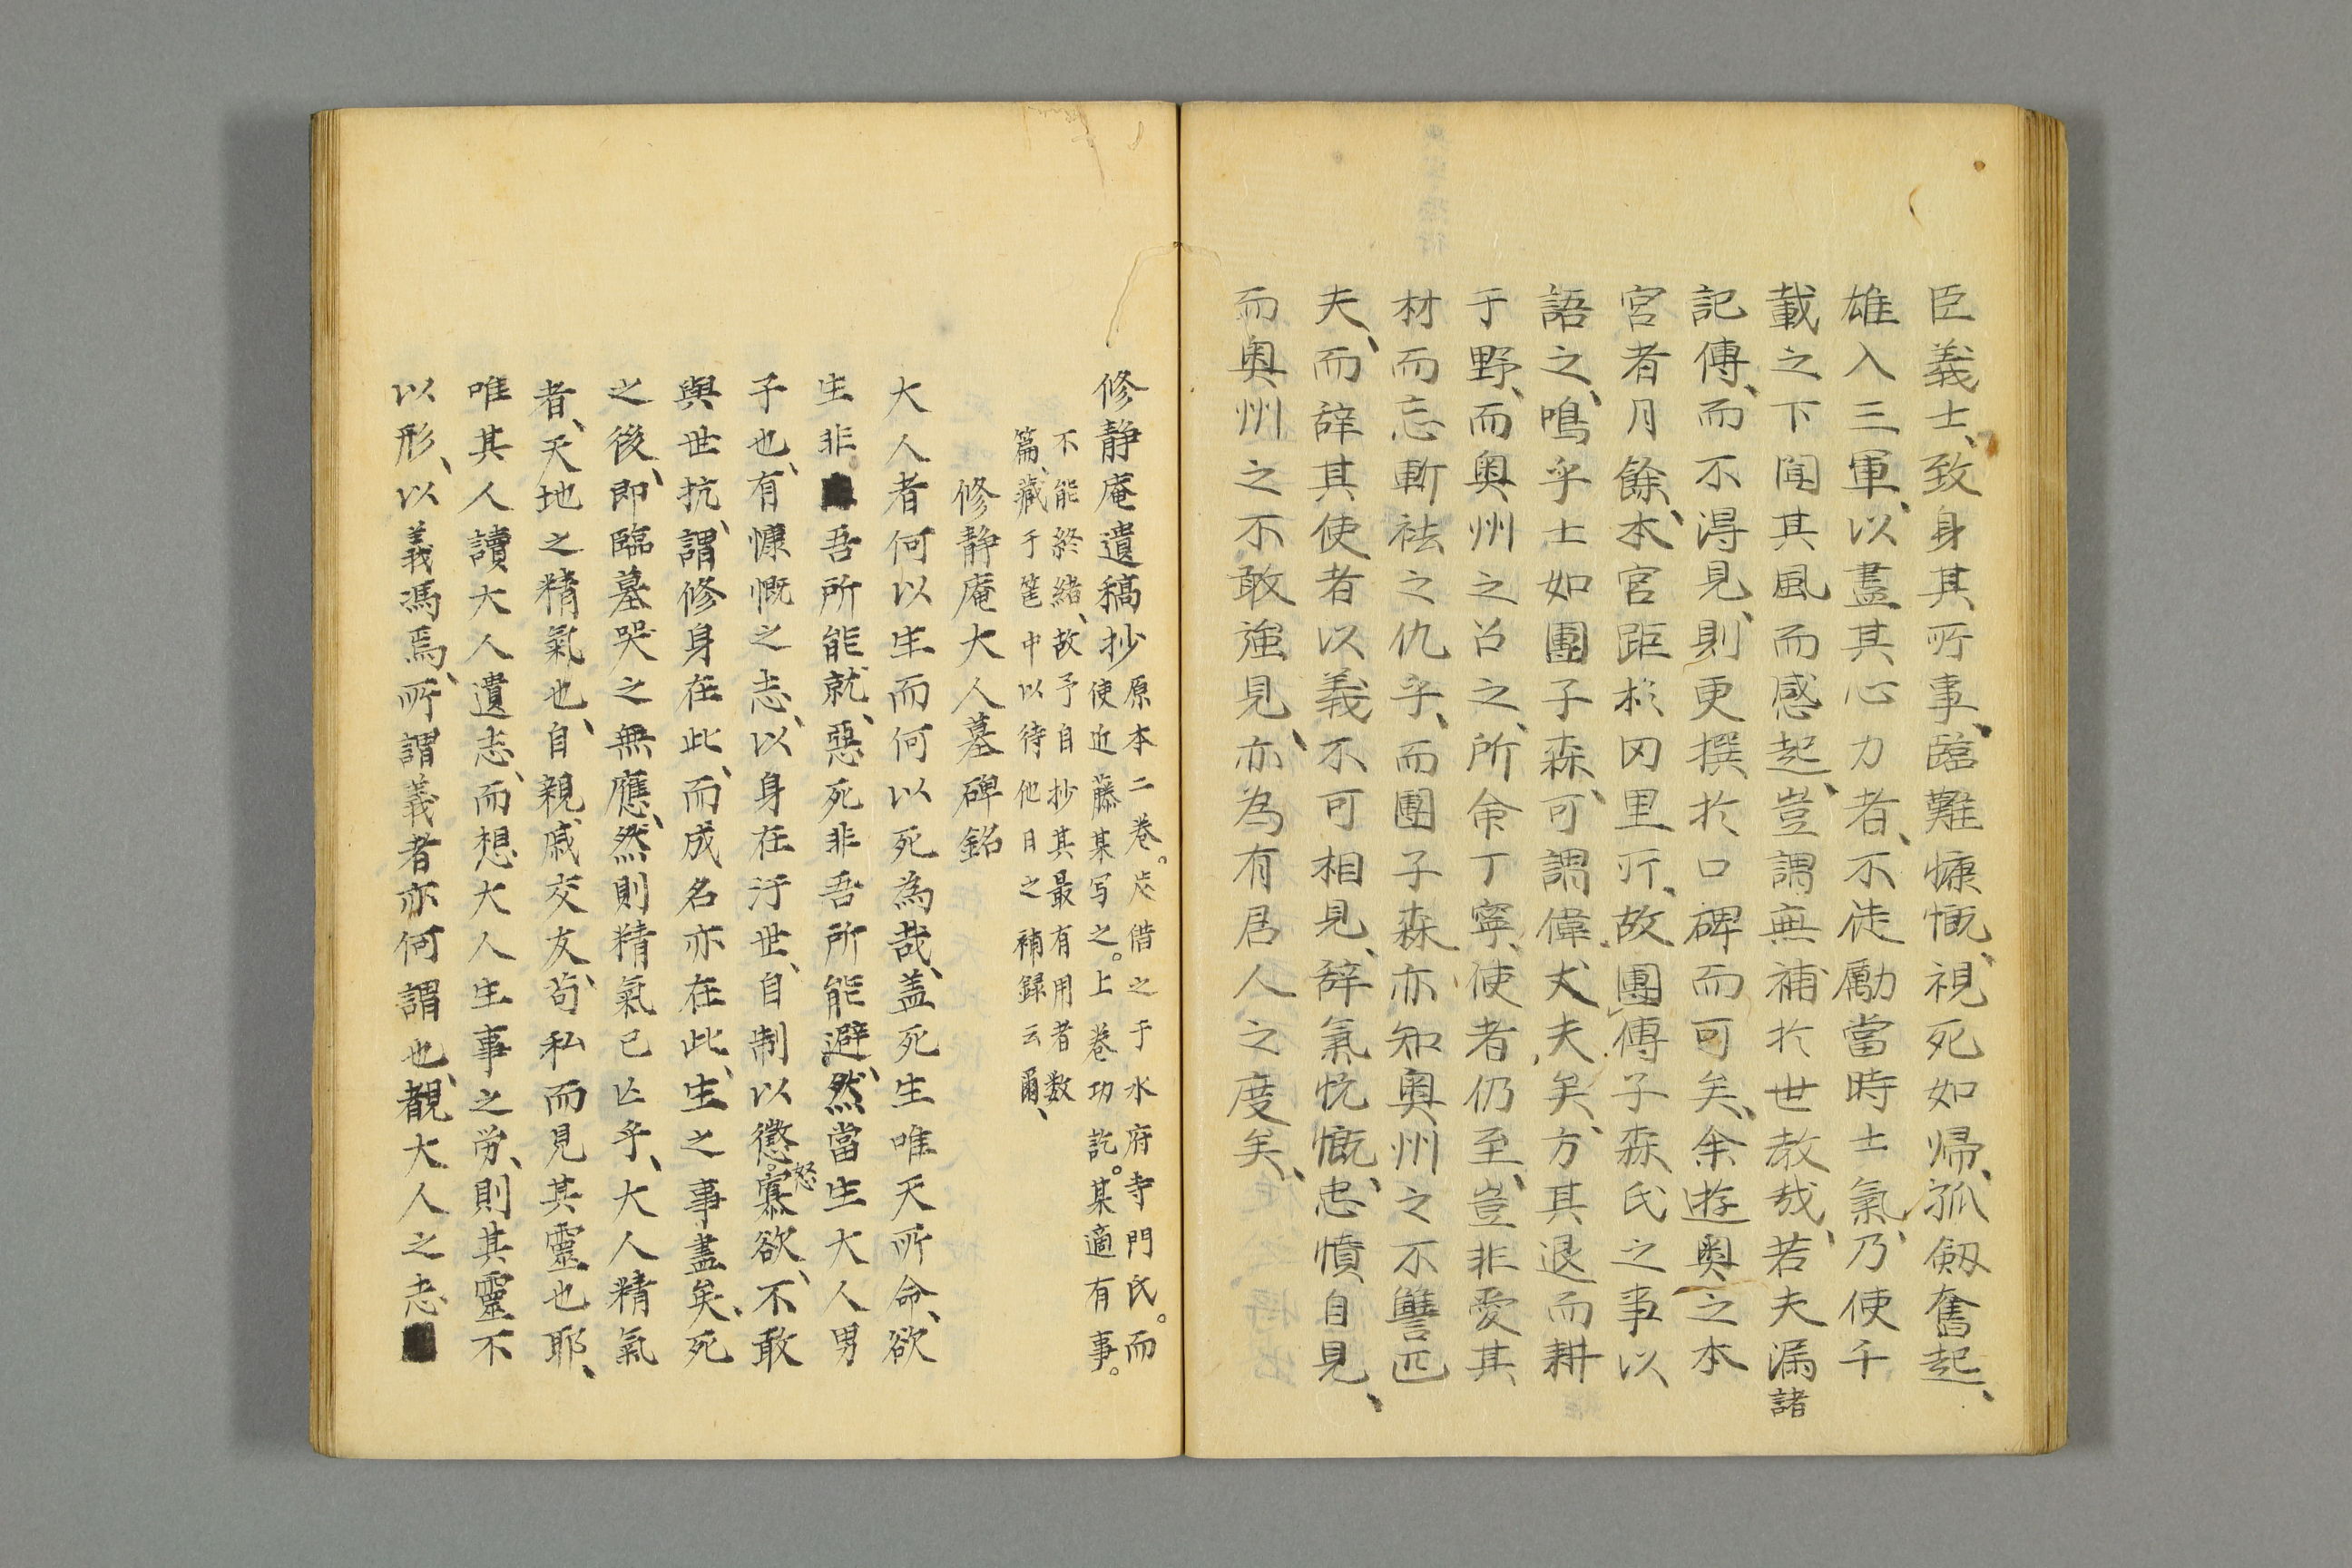 臣義士、致身其所事、臨難慷慨、視死如帰、孤劔奮起、
雄入三軍、以盡其心力者、不徒勵當時士氣、乃使千
載之下聞其風而感起、豈謂無補於世教哉、若夫漏諸
記傳、而不得見、則更撰於口碑而可矣、余遊奥之本
宮者月餘、本宮距杉冈里所、故團傳子森氏之事以
語之、嗚乎士如團子森、可謂偉丈夫矣、方其退而耕
于野、而奥州之召之、所命丁寧、使者仍至、豈非愛其
材而忘斬袪之仇乎、而團子森亦知奥州之不讐匹
夫、而辞其使者以義不可相見、辞氣忼慨、忠憤自見、
而奥州之不敢強見、亦為有君人之度矣、
修静庵遺稿抄 原本二巻。定借之于水府寺門氏。而
使近藤某写之。上巻功訖。某適有事。
不能終緒、故予自抄其最有用者数
篇、藏于笔中以待他日之補録云爾、
修静庵大人墓碑銘
大人者何以生而何以死為哉、盖死生唯天所命、欲
生非吾所能就、惡死非吾所能避、然當生大人男
子也、有慷慨之志、以身在汙世、自制以懲寡欲、不敢
怒
與世抗、謂修身在此、而成名亦在此、生之事盡矣、死
之後、即臨墓哭之無應、然則精氣已亡乎、大人精氣
者、天地之精氣也、自親戚交友、苟私而見其靈也耶、
唯其人讀大人遺志、而想大人生事之労、則其靈不
以形、以義馮焉、所謂義者亦何謂也、覩大人之志